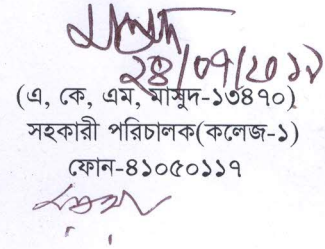 ২৪/০৭/২০১৯
(এ, কে, এম, মাসুদ-১৩৪৭০)
সহকারী পরিচালক(কলেজ-১)
ফোন-৪১০৫০১১৭